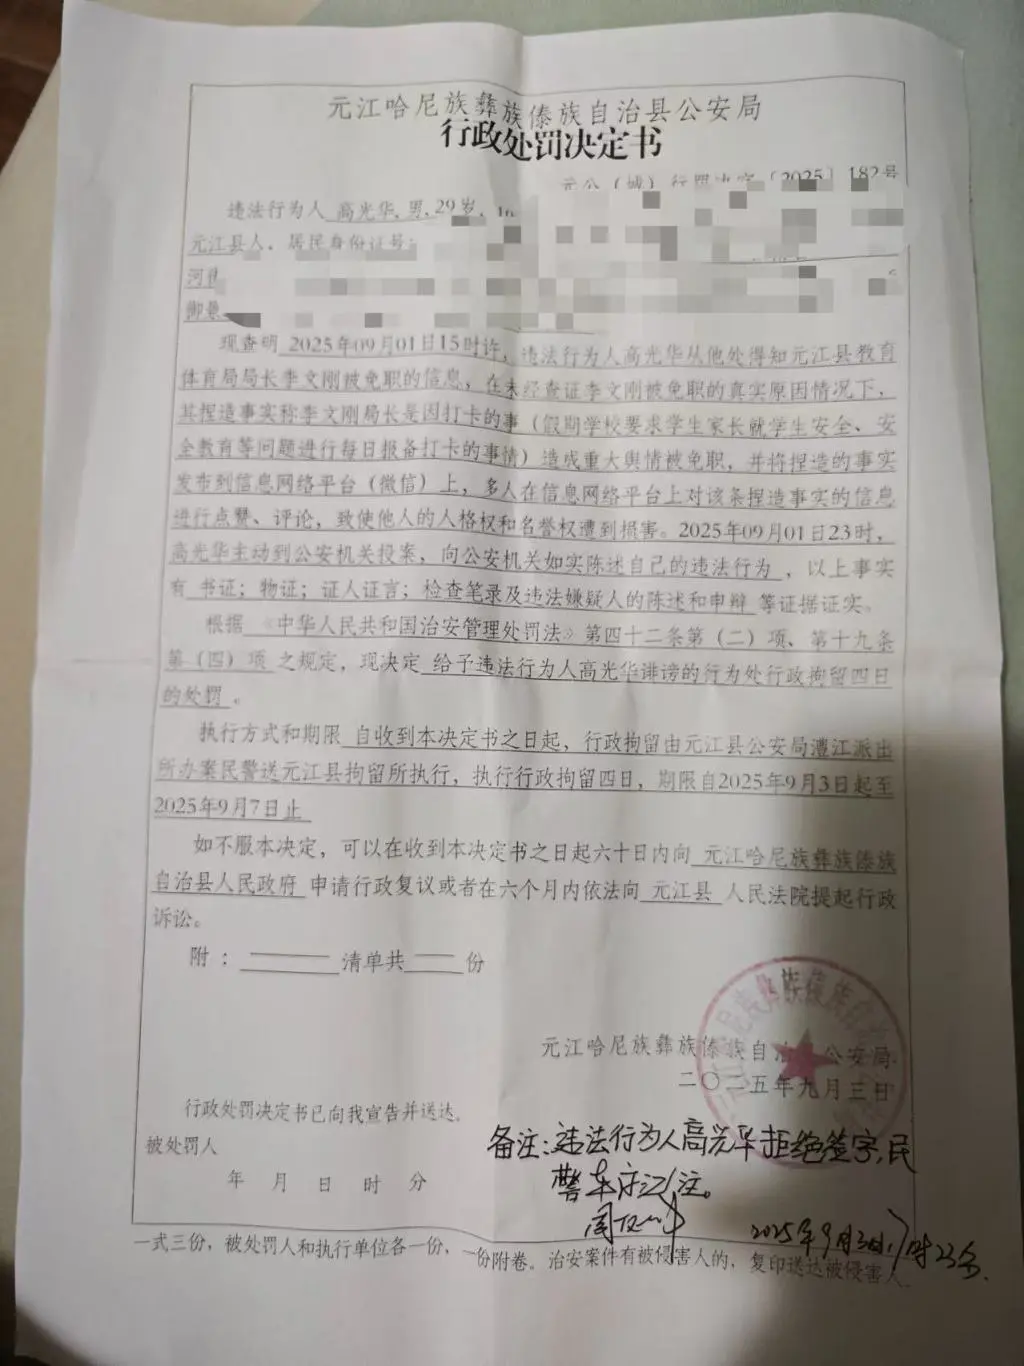 元江哈尼族彝族傣族自治县公安局
行政处罚决定书
元公（城）行罚决字〔2025〕182号
违法行为人 高光华,男,29岁,
元江县人，居民身份证号:
现查明 2025年09月01日15时许，违法行为人高光华从他处得知元江县教育
体育局局长李文刚被免职的信息，在未经查证李文刚被免职的真实原因情况下，
其捏造事实称李文刚局长是因打卡的事（假期学校要求学生家长就学生安全、安
全教育等问题进行每日报备打卡的事情）造成重大舆情被免职，并将捏造的事实
发布到信息网络平台（微信）上，多人在信息网络平台上对该条捏造事实的信息
进行点赞、评论，致使他人的人格权和名誉权遭到损害。2025年09月01日23时，
高光华主动到公安机关投案，向公安机关如实陈述自己的违法行为 ，以上事实
有 书证；物证；证人证言；检查笔录及违法嫌疑人的陈述和申辩 等证据证实。
根据 《中华人民共和国治安管理处罚法》第四十二条第（二）项、第十九条
第（四）项 之规定，现决定 给予违法行为人高光华诽谤的行为处行政拘留四日
的处罚 。
执行方式和期限 自收到本决定书之日起，行政拘留由元江县公安局澧江派出
所办案民警送元江县拘留所执行，执行行政拘留四日，期限自2025年9月3日起至
2025年9月7日止
如不服本决定，可以在收到本决定书之日起六十日内向 元江哈尼族彝族傣族
自治县人民政府 申请行政复议或者在六个月内依法向 元江县 人民法院提起行政
诉讼。
附： 清单共 份
元江哈尼族彝族傣族自治县公安局
二〇二五年九月三日
行政处罚决定书已向我宣告并送达。
被处罚人
年 月 日 时 分
备注:违法行为人高光华拒绝签字,民
警 注。
2025年9月3日 时23分.
一式三份，被处罚人和执行单位各一份，一份附卷。治安案件有被侵害人的，复印送达被侵害人